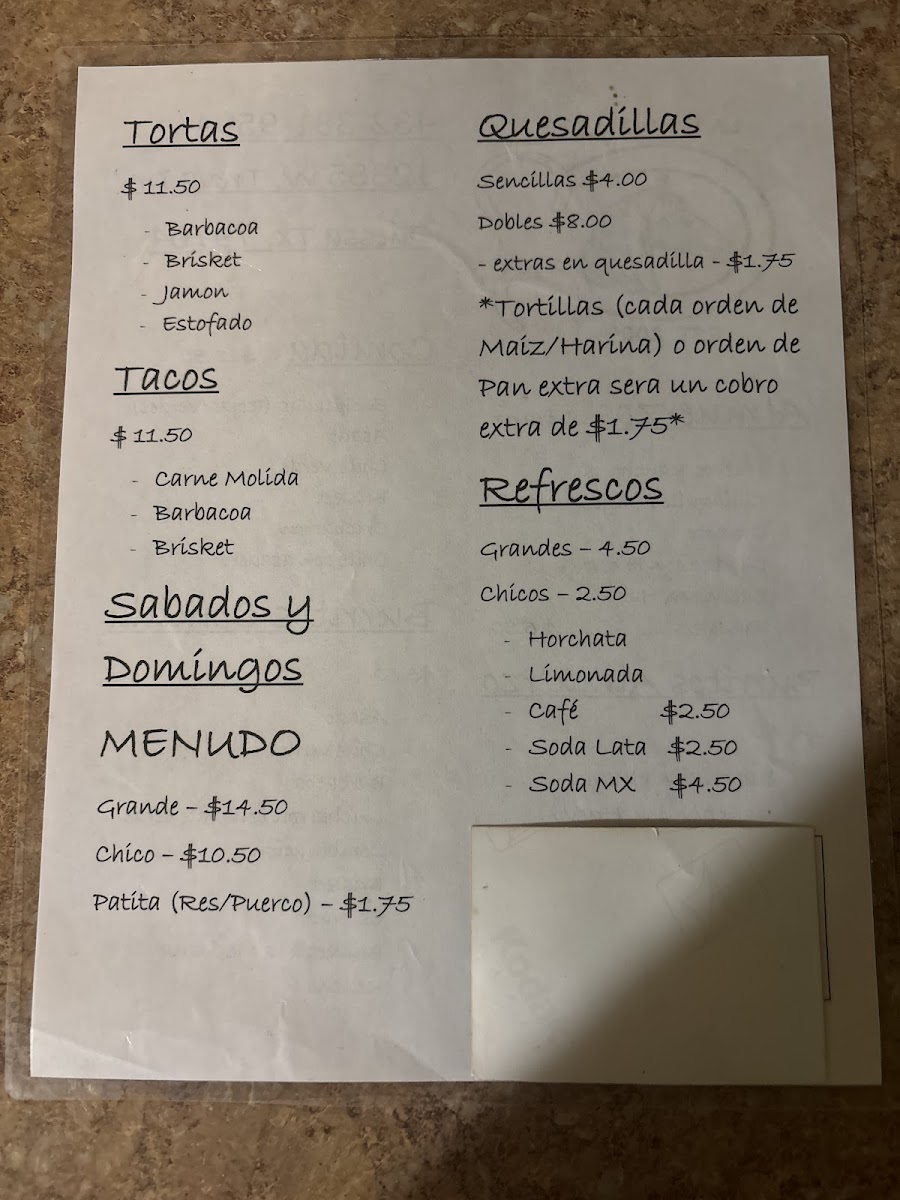 Tortas
$ 11.50
- Barbacoa
- Brisket
- Jamon
- Estofado
Tacos
$ 11.50
- Carne Molida
- Barbacoa
- Brisket
Sabados y
Domingos
MENUDO
Grande – $14.50
Chico – $10.50
Patita (Res/Puerco) – $1.75
Quesadillas
Sencillas $4.00
Dobles $8.00
- extras en quesadilla - $1.75
*Tortillas (cada orden de
Maiz/Harina) o orden de
Pan extra sera un cobro
extra de $1.75*
Refrescos
Grandes – 4.50
Chicos – 2.50
- Horchata
- Limonada
- Café $2.50
- Soda Lata $2.50
- Soda MX $4.50